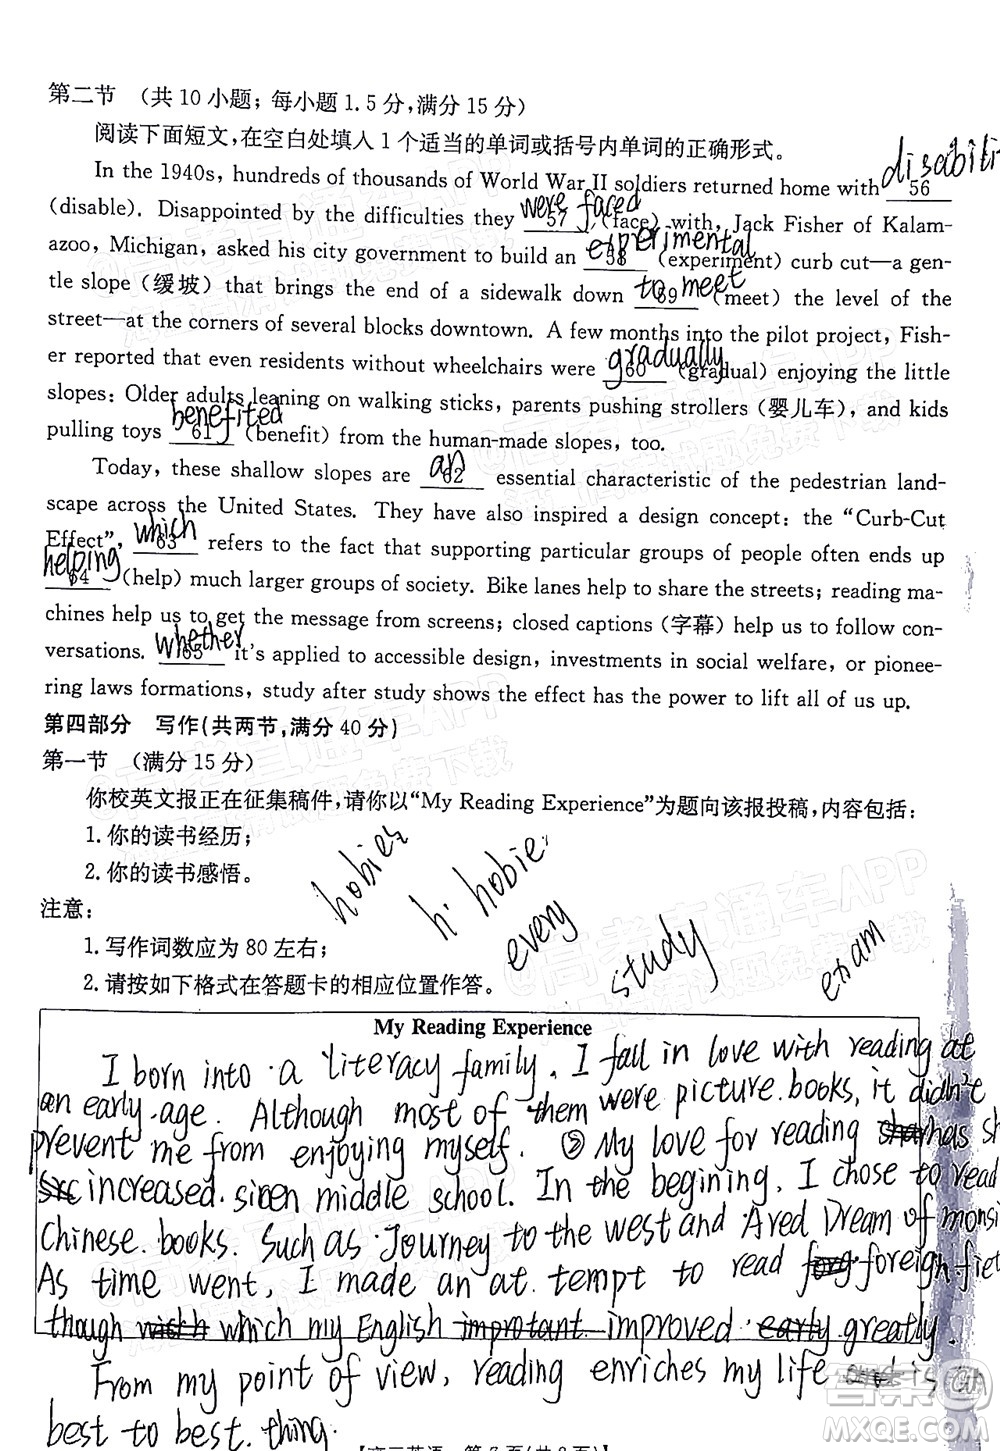 第二节 （共10小题；每小题1.5分，满分15分）
阅读下面短文，在空白处填入1个适当的单词或括号内单词的正确形式。
In the 1940s, hundreds of thousands of World War II soldiers returned home with 56 disabiliti
(disable). Disappointed by the difficulties they 57 were faced (face) with, Jack Fisher of Kalam-
azoo, Michigan, asked his city government to build an 58 experimental (experiment) curb cut—a gen-
tle slope (缓坡) that brings the end of a sidewalk down 59 to meet (meet) the level of the
street—at the corners of several blocks downtown. A few months into the pilot project, Fish-
er reported that even residents without wheelchairs were 60 gradually (gradual) enjoying the little
slopes: Older adults leaning on walking sticks, parents pushing strollers (婴儿车), and kids
pulling toys 61 benefited (benefit) from the human-made slopes, too.
Today, these shallow slopes are 62 an essential characteristic of the pedestrian land-
scape across the United States. They have also inspired a design concept: the “Curb-Cut
Effect”, 63 which refers to the fact that supporting particular groups of people often ends up
64 helping (help) much larger groups of society. Bike lanes help to share the streets; reading ma-
chines help us to get the message from screens; closed captions (字幕) help us to follow con-
versations. 65 whether it's applied to accessible design, investments in social welfare, or pionee-
ring laws formations, study after study shows the effect has the power to lift all of us up.
第四部分 写作（共两节，满分40分）
第一节 （满分15分）
你校英文报正在征集稿件，请你以“My Reading Experience”为题向该报投稿，内容包括：
1. 你的读书经历；
2. 你的读书感悟。
注意：
1. 写作词数应为80左右；
2. 请按如下格式在答题卡的相应位置作答。
hobies
hi hobie
every
study
exam
My Reading Experience
I born into a literacy family. I fall in love with reading at
an early age. Although most of them were picture books, it didn't
prevent me from enjoying myself. ⑤ My love for reading has sh
increased. sincn middle school. In the begining, I chose to read
Chinese books. Such as Journey to the west and A red Dream of monsi
As time went, I made an attempt to read foreign fict
though which my English improved greatly.
From my point of view, reading enriches my life is
best to best. thing.
【高三英语 第7页（共8页）】
答案
MXQE.COM